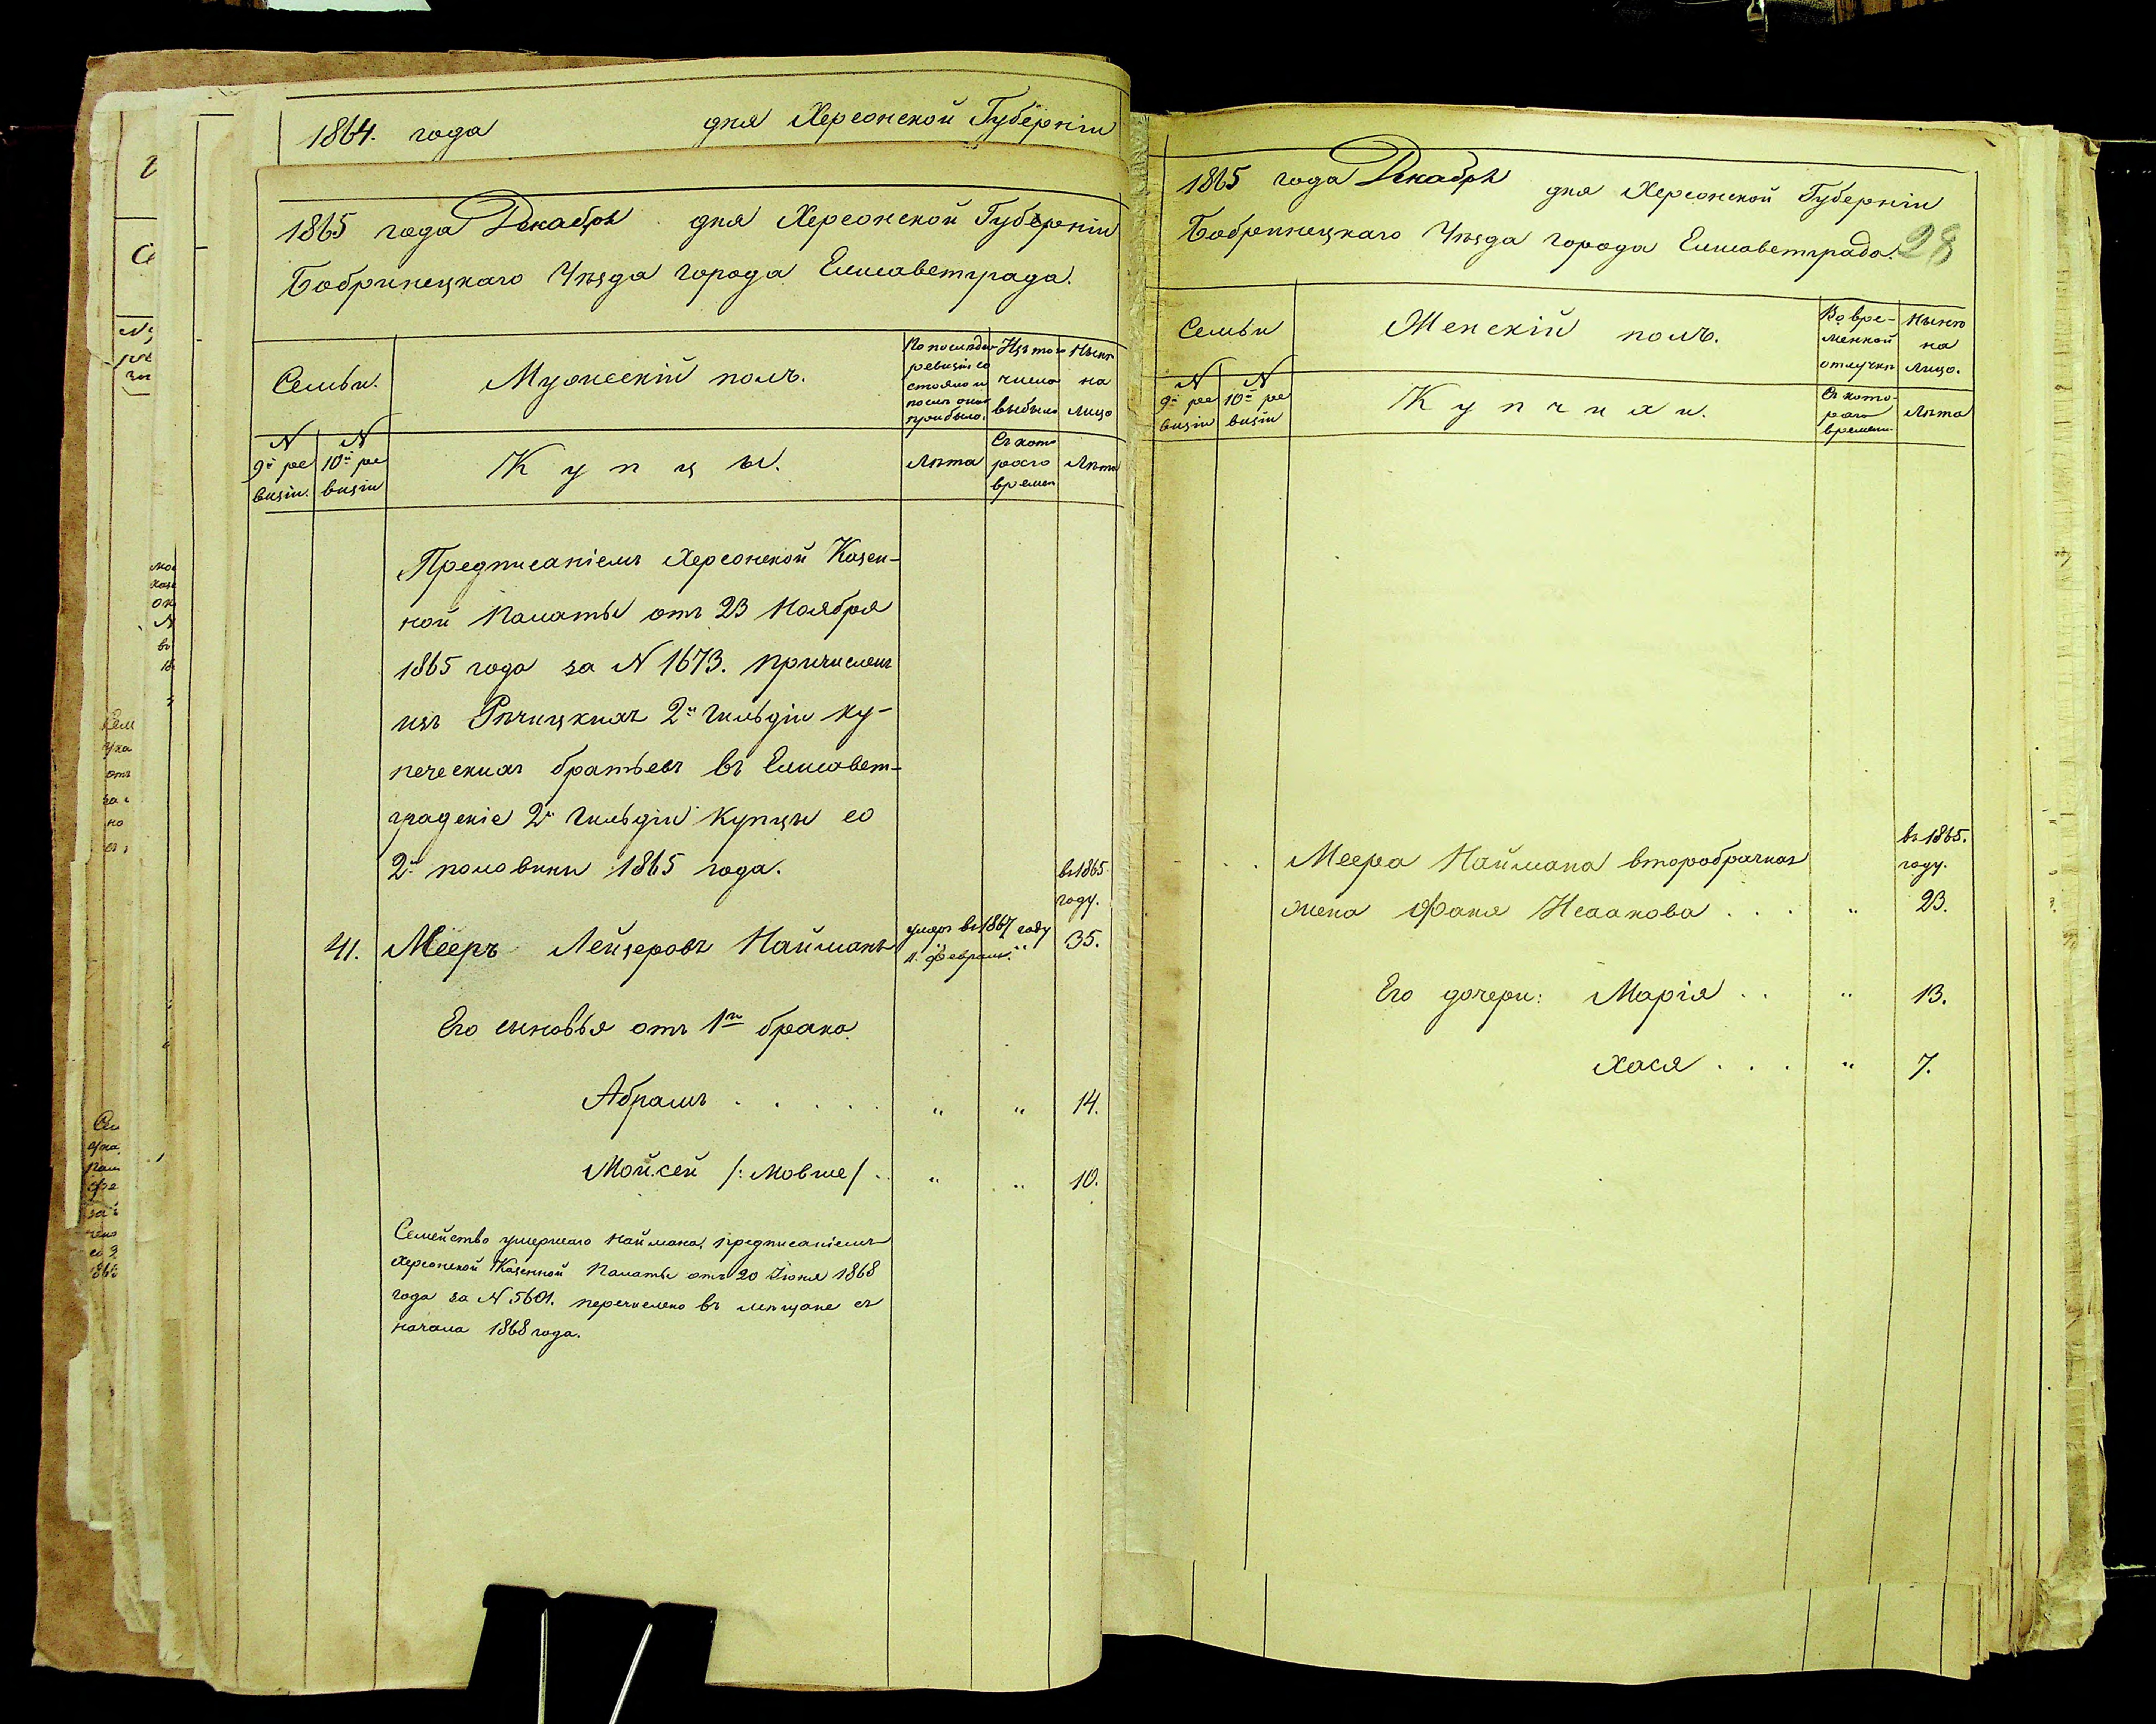 1864. года дня Херсонской Губерніи
1865 года Декабря дня Херсонской Губерніи
Бобринецкаго Уѣзда города Елисаветграда.
Семьи.
Мужескій полъ.
По послѣдней
ревизіи со
стояло и
послѣ оной
прибыло.
Изъ того
числа
выбыло
Нынѣ
на
лицо
N
9й ре
визіи.
N
10й ре
визіи
Купцы.
Лѣта
Съ кото
раго
времен
Лѣта
Предписаніемъ Херсонской Казен-
ной Палаты отъ 23 Ноября
1865 года за N 1673. причислены
изъ Рѣчицкихъ 2й гильдіи ку-
печескихъ братьевъ въ Елисавет-
градскіе 2й гильдіи купцы со
2й половины 1865 года.
въ 1865
году.
41. Мееръ Лейзеровъ Найманъ умеръ въ 1867 году 35.
11. Февраля.
Его сыновья отъ 1го брака.
Абрамъ . . . . . " " 14.
Мойсей /: Мовше/ . . " " 10.
Семейство умершаго Наймана, предписаніемъ
Херсонской Казенной Палаты отъ 20 Іюня 1868
года за N 5601. перечислено въ мѣщане съ
начала 1868 года.
1865 года Декабря дня Херсонской Губерніи
Бобринецкаго Уѣзда города Елисаветграда. 28
Семьи
Женскій полъ.
Во вре-
менной
отлучкѣ
Нынѣ
на
лицо.
N
9й ре
визіи
N
10й ре
визіи
Купчихи.
Съ кото-
раго
времени
Лѣта
въ 1865.
году.
Меера Наймана второбрачная
жена Фаня Исаакова . . . " 23.
Его дочери: Марія . . " 13.
Хася . . . " 7.